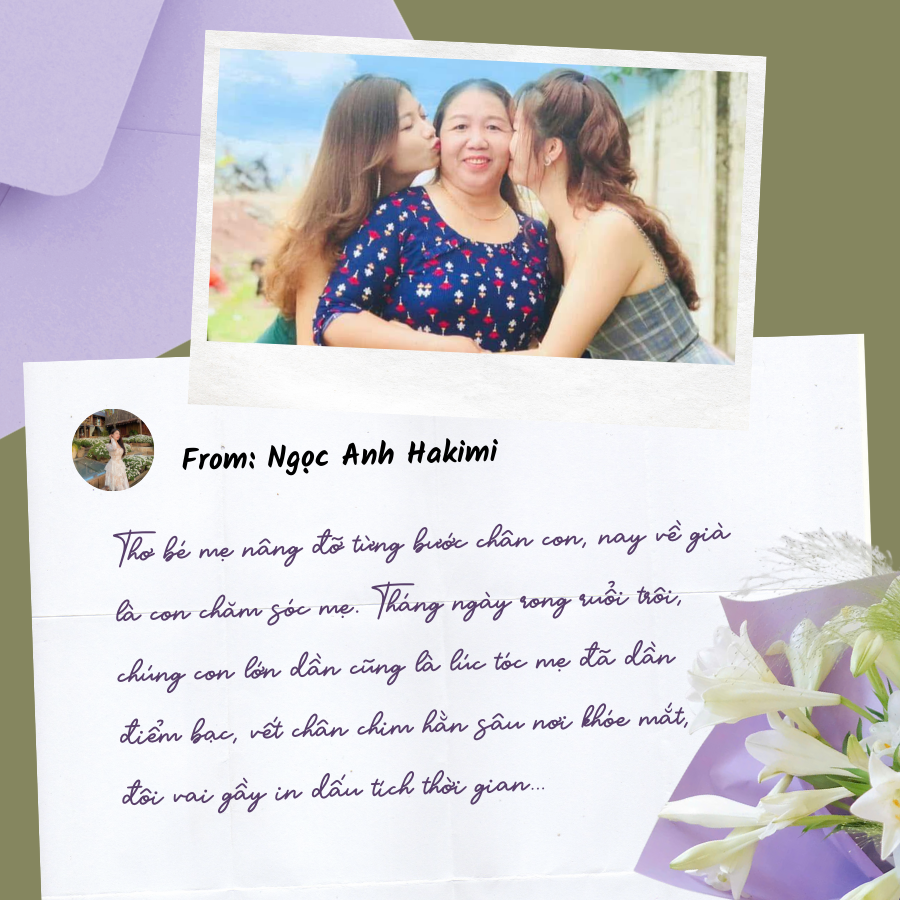 From: Ngọc Anh Hakimi
Thơ bé mẹ nâng đỡ từng bước chân con, nay về già
là con chăm sóc mẹ. Tháng ngày rong ruổi trôi,
chúng con lớn dần cũng là lúc tóc mẹ đã dần
điểm bạc, vết chân chim hằn sâu nơi khóe mắt,
đôi vai gầy in dấu tích thời gian...